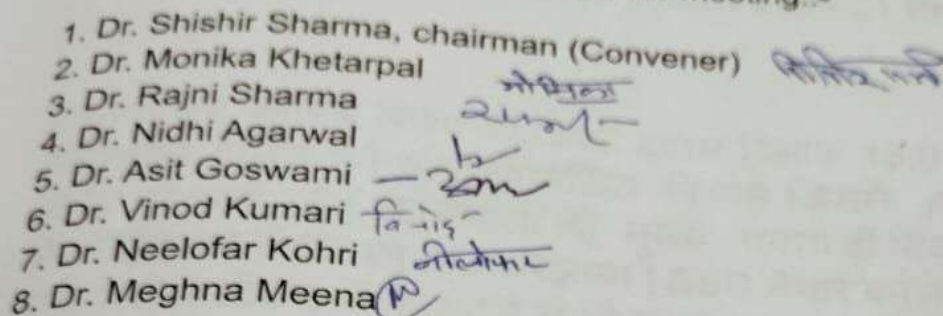 meeting:-
1. Dr. Shishir Sharma, chairman (Convener) शिशिर शर्मा
2. Dr. Monika Khetarpal मोनिका
3. Dr. Rajni Sharma
4. Dr. Nidhi Agarwal
5. Dr. Asit Goswami
6. Dr. Vinod Kumari विनोद
7. Dr. Neelofar Kohri नीलोफर
8. Dr. Meghna Meena